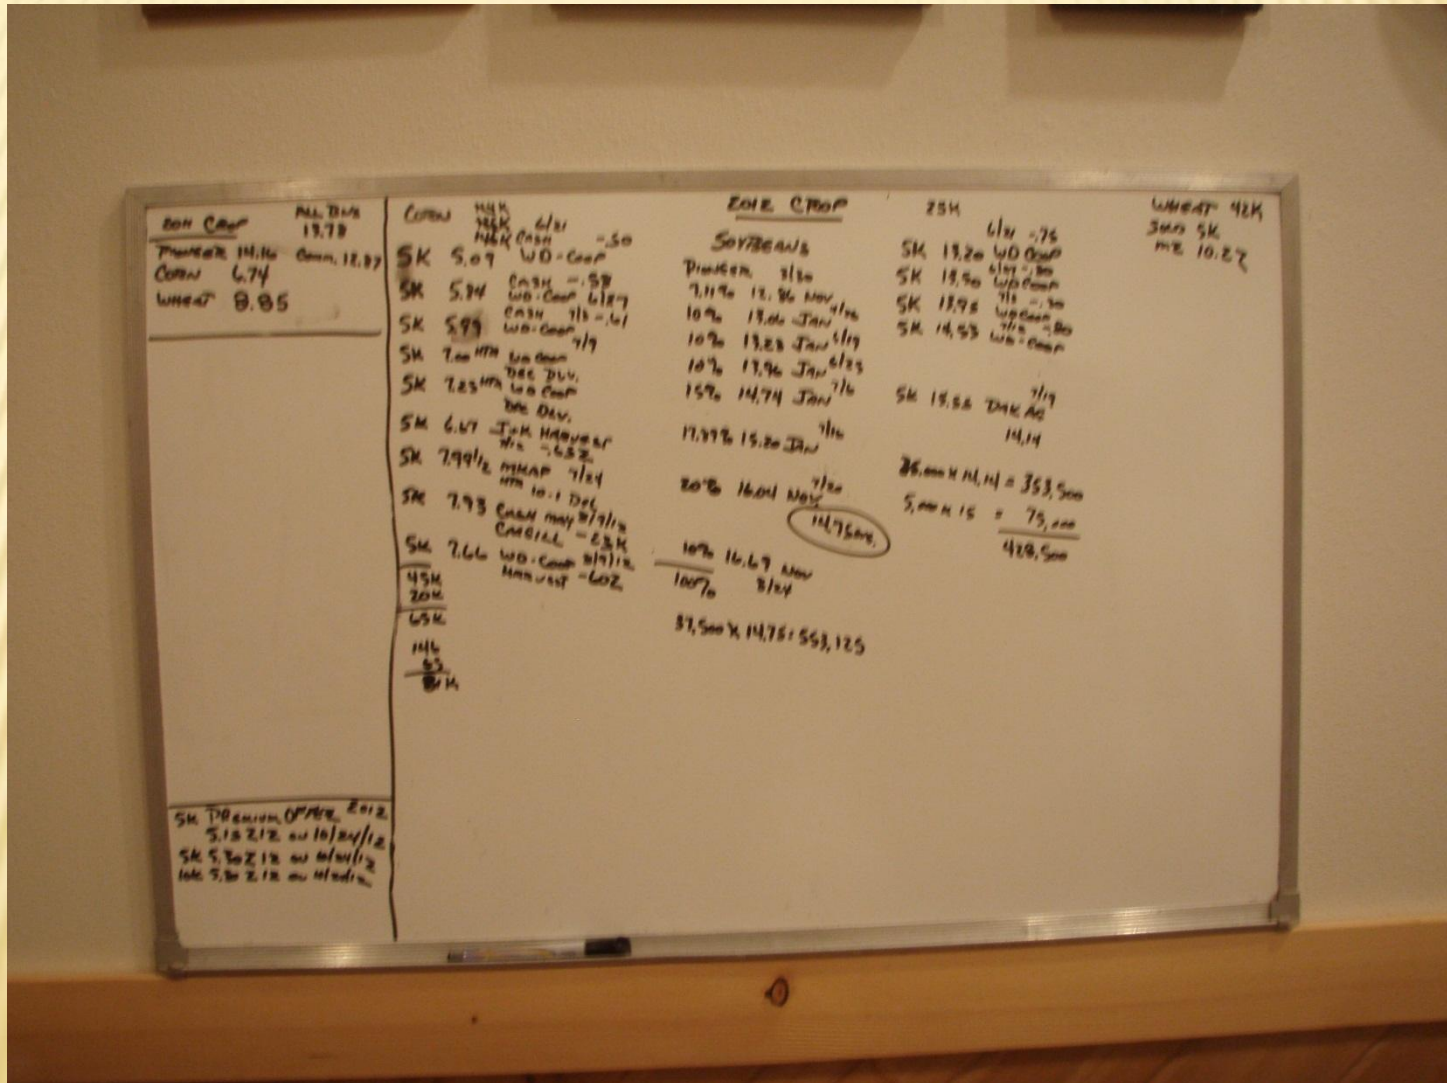 2011 CROP
ALL BNS
13.78
PIONEER 14.16 Comm. 12.87
CORN 6.74
WHEAT 8.85
5K PREMIUM OFFER 2012
5.15 Z12 ON 10/24/12
5K 5.30 Z12 ON
5.80 Z12 ON
CORN
146K CASH -.50
6/21
5K 5.09 WD-COOP
CASH -.58
5K 5.84 WD-COOP 6/27
CASH 7/3 -.61
5K 5.99 WD-COOP
7/9
5K 7.00 HTA WD COOP
DEC DLV.
5K 7.23 HTA WD COOP
DEC DLV.
5K 6.67 J&K HARVEST
-.63Z
5K 7.99 1/2 MKAP 7/24
HTA 10-1 DEL
5K 7.93 CASH MAY 8/9/12
CARGILL -23K
5K 7.66 WD-COOP 8/9/12
HARVEST -60Z
45K
20K
65K
146
65
81K
2012 CROP
SOYBEANS
PIONEER
7.11% 12.86 NOV
10% 13.06 JAN
10% 13.23 JAN 6/19
10% 13.96 JAN 6/23
15% 14.74 JAN 7/6
17.89% 15.20 JAN 7/16
20% 16.04 NOV 7/20
14.75 AVE.
10% 16.69 NOV
100% 8/24
37,500 X 14.75 = 553,125
25K
6/21 -.75
5K 13.20 WD COOP
5K 13.50 WD COOP
5K 13.95 WD COOP
5K 14.53 WD-COOP
7/19
5K 15.55 DAK AG
14.14
25,000 X 14.14 = 353,500
5,000 X 15 = 75,000
428,500
WHEAT 42K
5K
10.27